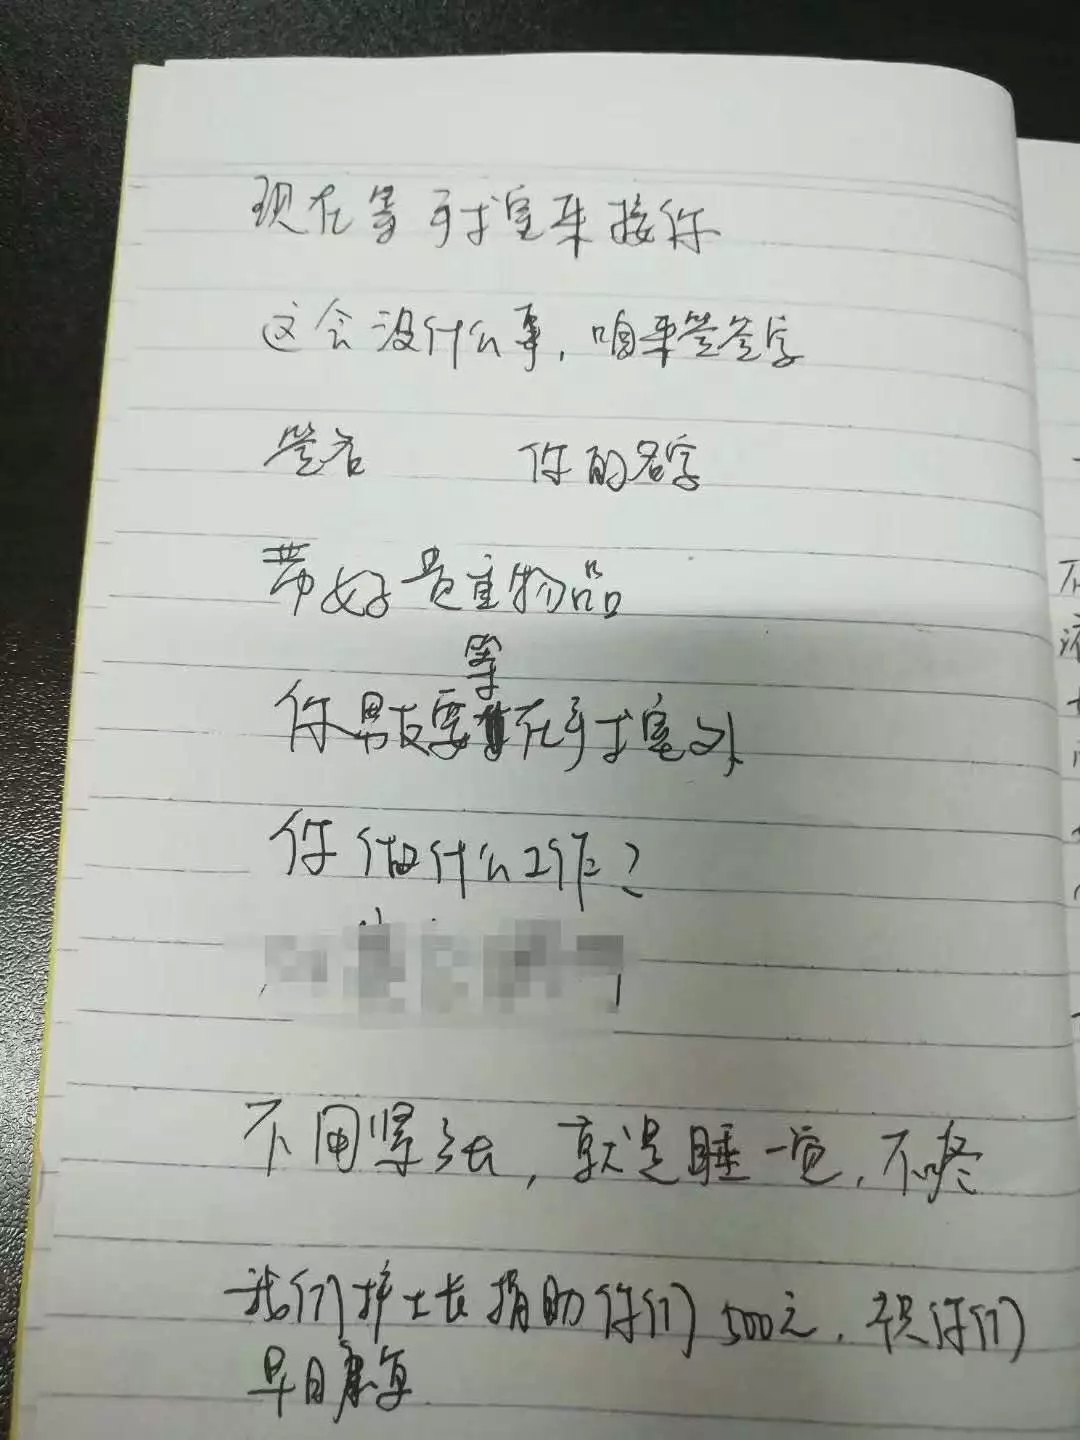 现在等手术室来接你
这会没什么事,咱来签签字
签名 你的名字
带好贵重物品
等
你男友要在手术室外
你做什么工作?
不用紧张,就是睡一觉,不疼
我们护士长捐助你们500元,祝你们
早日康复